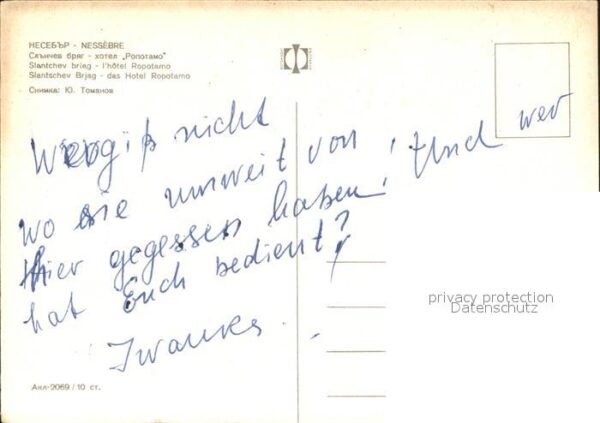 НЕСЕБЪР - NESSÈBRE
Слънчев бряг - хотел „Ропотамо"
Slantchev briag - l'hôtel Ropotamo
Slantschev Brjag - das Hotel Ropotamo
Снимка: Ю. Томанов
Vergiß nicht
wo sie unweit von
hier gegessen haben! Und wer
hat Euch bedient?
Iwanka
Акл-2069 / 10 ст.
privacy protection
Datenschutz